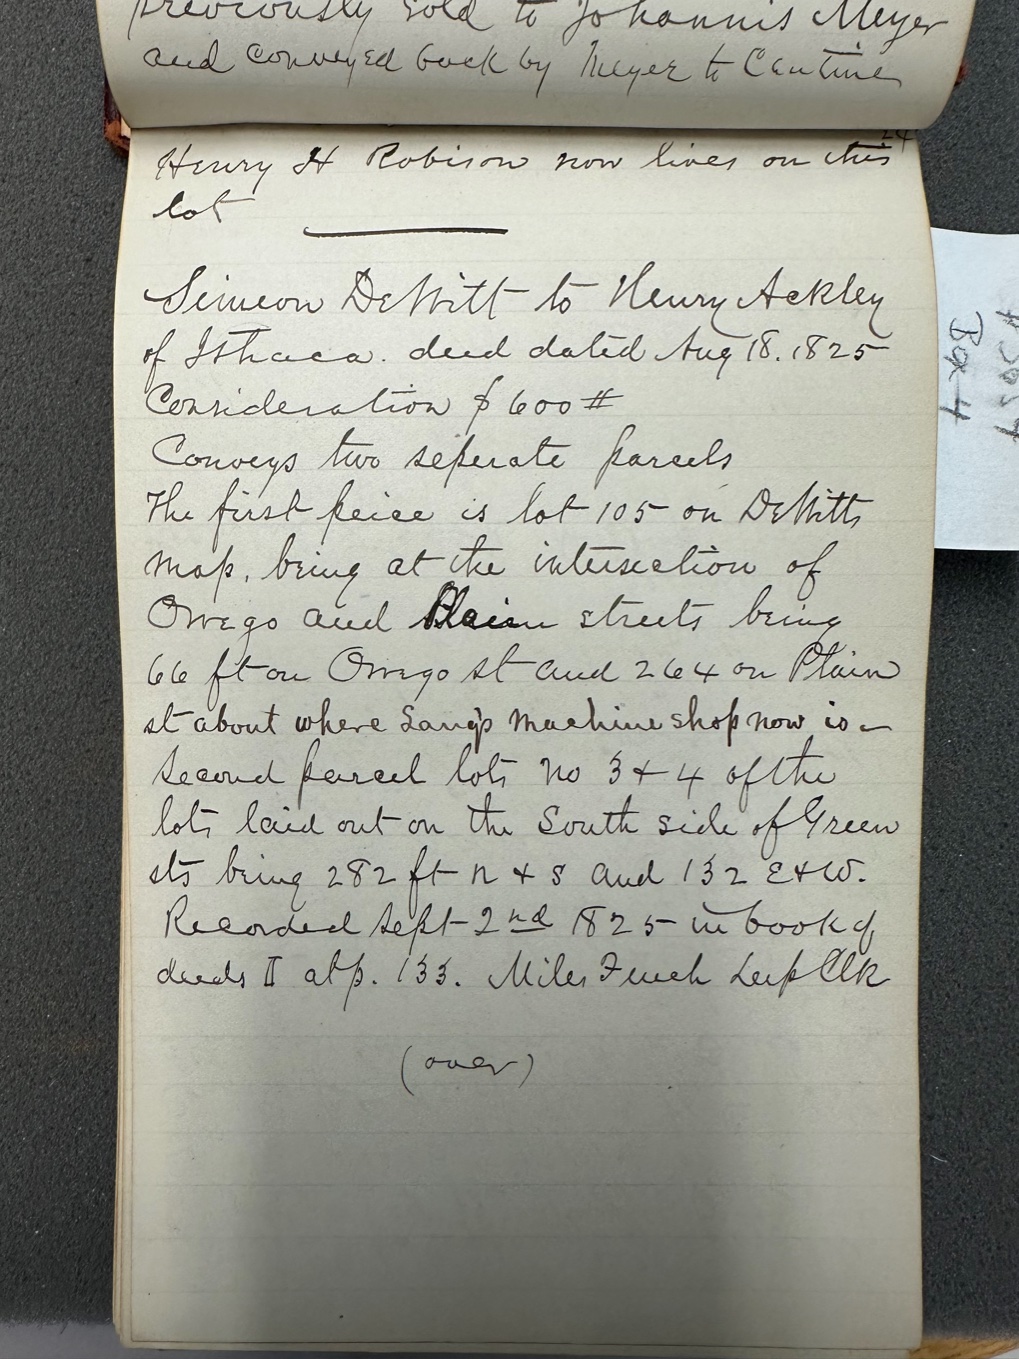 previously sold to Johannis Meyer
and conveyed back by Meyer to Cantine
24
Henry H Robison now lives on this
lot
Simeon DeWitt to Henry Ackley
of Ithaca. deed dated Aug 18. 1825
Consideration $600#
Conveys two seperate parcels
The first peice is lot 105 on DeWitts
map, being at the intersection of
Owego and Plain streets being
66 ft on Owego st and 264 on Plain
st about where Lang's machine shop now is -
Second parcel lots no 3 + 4 of the
lots laid out on the South side of Green
sts being 282 ft n + s and 132 E+W.
Recorded Sept 2nd 1825 in book of
deeds I at p. 133. Miles Finch Dep Clk
(over)
Box 4